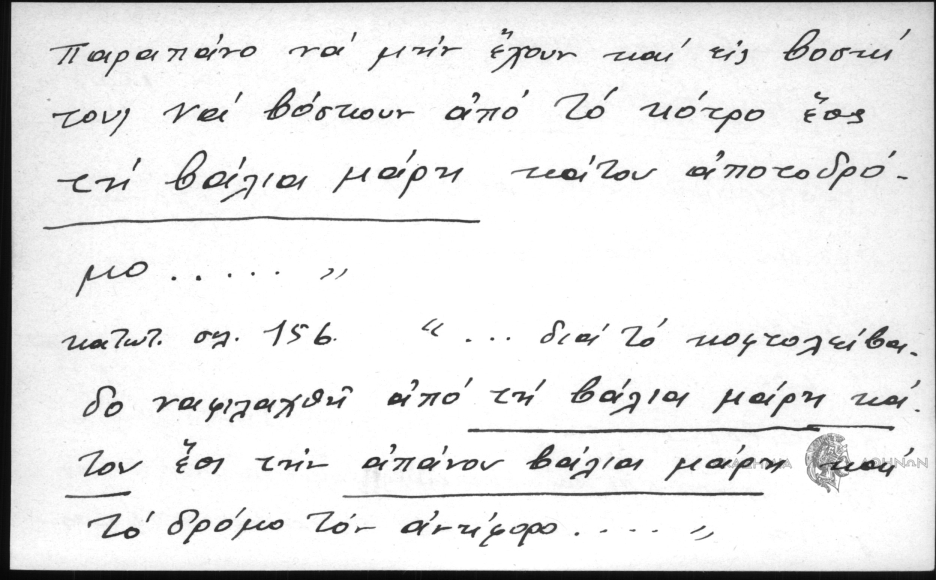 Παραπάνο νά μήν ἔχουν καί εἰς βοσκή
τους Νά βόσκουν ἀπό τό κότρο ἔος
τή βάλια μάρη κάτου ἀποτοδρό-
μο ..... „
κατωτ. σελ. 156. “... διά τό κοφτολείβα-
δο ναφιλαχθῆ ἀπό τή βάλια μάρη κά-
του ἔος τήν ἀπάνου βάλια μάρη καί
τό δρόμο τόν ἀντίφορο .... „
ΑΘΗΝΩΝ